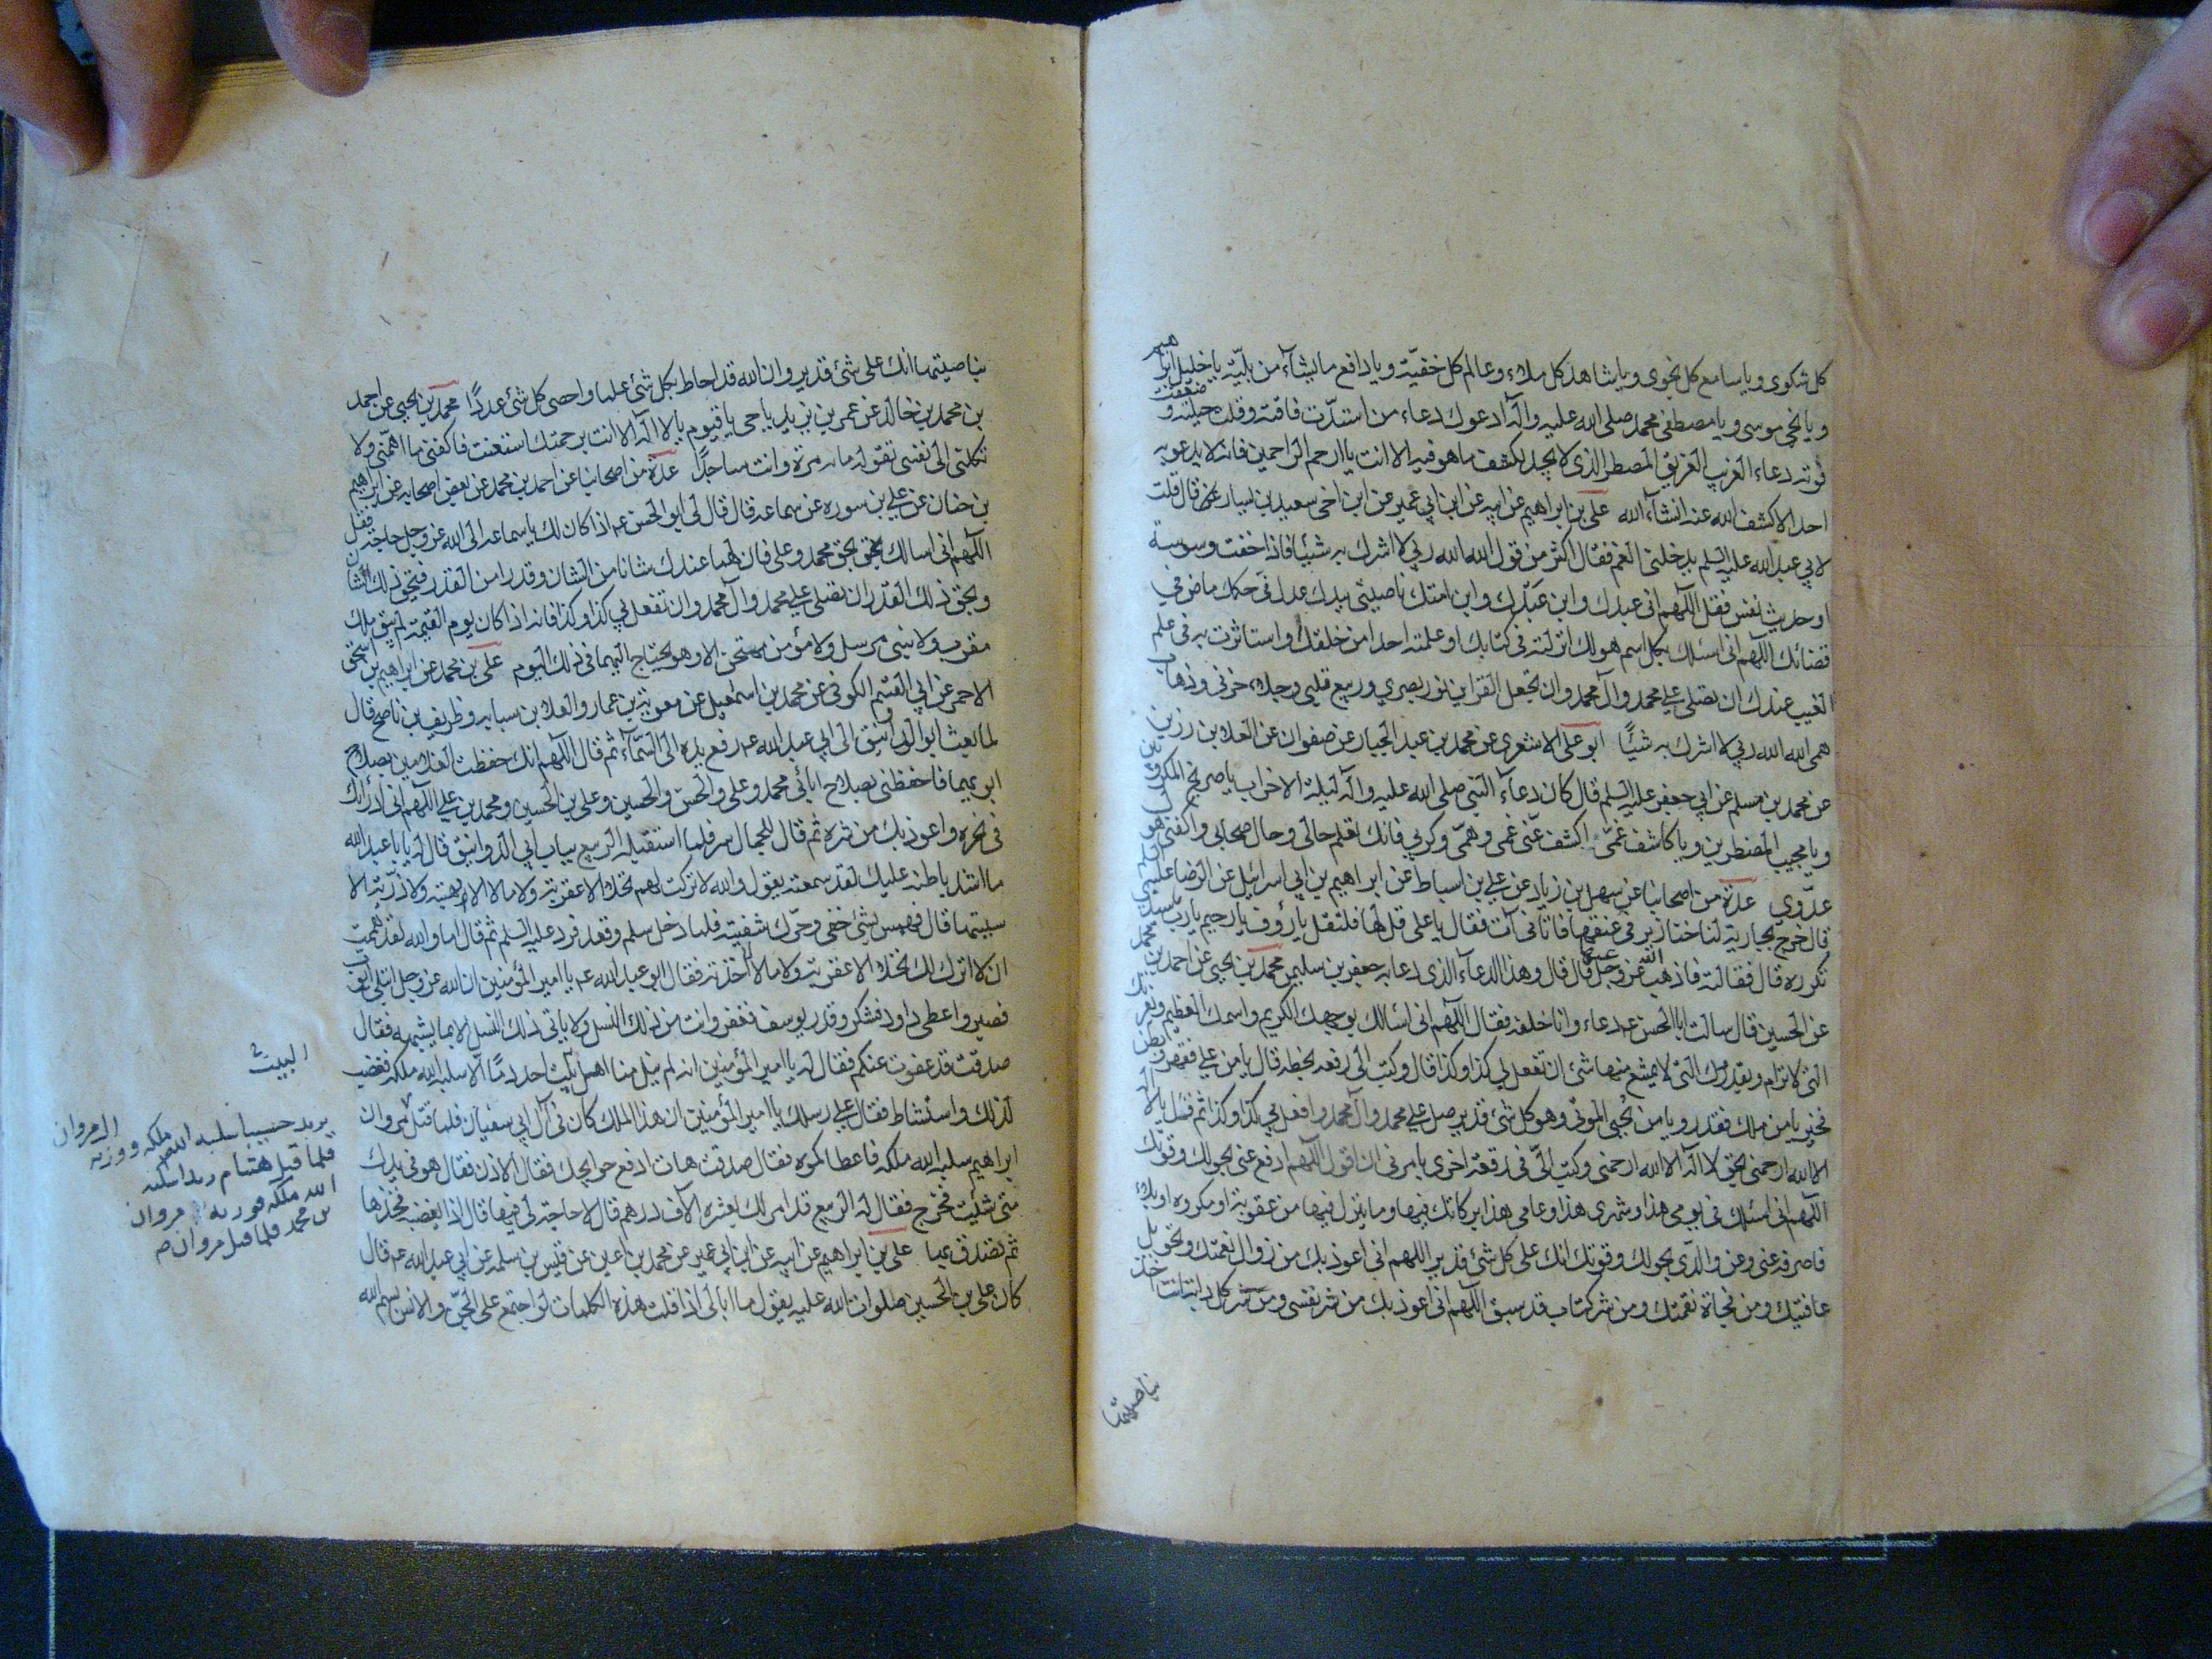 كل شكوى ويا سامع كل نجوى ويا شاهد كل ملاء وعالم كل خفيّة ويا دافع ما يشآء من بليّة يا خليل ابرا
هيم
ويا نجي موسى ويا مصطفى محمد صلى الله عليه وآله ادعوك دعاء من استدّت فاقته وقلت حيلته و
ضعفت
قوته دعاء الغريب الغريق المضطر الذي لا يجد لكشف ما هو فيه الا انت يا ارحم الراحمين فانه لا يدعو به
احد الا كشف الله عنه انشآء الله علي بن ابراهيم عن ابيه عن ابن ابي عمير عن ابن اخي سعيد بن يسار قال قلت
لابي عبد الله عليه السلم يدخلني الغم فقال اكثر من قول الله الله ربي لا اشرك به شيئا فاذا خفت وسوسة
او حديث نفس فقل اللهم اني عبدك وابن عبدك وابن امتك ناصيتي بيدك عدل فيّ حكمك ماض فيّ
قضائك اللهم اني اسئلك بكل اسم هو لك انزلته في كتابك او علمته احدا من خلقك او استاثرت به في علم
الغيب عندك ان تصلي على محمد وآل محمد وان تجعل القران نور بصري وربيع قلبي وجلاء حزني وذهاب
همي الله الله ربي لا اشرك به شيئًا ابو علي الاشعري عن محمد بن عبد الجبار عن صفوان عن العلا بن رزين
عن محمد بن مسلم عن ابي جعفر عليه السلم قال كان دعآء النبي صلى الله عليه وآله ليلة الاحزاب يا صريخ المكرو
بين
ويا مجيب المضطرين ويا كاشف غمّي اكشف عنّي غمي وهمّي وكربي فانك تعلم حالي وحال صحابي واكفني هو
ل
عدّوي عدة من اصحابنا عن سهل بن زياد عن علي بن اسباط عن ابراهيم بن ابي اسرائيل عن الرضا عليه
قال خرج بجارية لنا خنازير في عنقها فاتاني آت فقال يا علي قل لها فلتقل يا رؤف يا رحيم يا رب يا سيدي
تكرره قال فقالته فاذهب الله عز وجل عنها قال قال وهذا الدعآء الذي دعا به جعفر بن سليمن محمد بن يحيى عن احمد بن
محمد
عن الحسين قال سالت ابا الحسن ع دعاء وانا خلفه فقال اللهم اني اسالك بوجهك الكريم واسمك العظيم وبعز
تك
التي لا ترام وبقدرتك التي لا يمتنع منها شئ ان تفعل بي كذا وكذا قال وكتب الي رقعه بخطه قال يا من علا فقهر
وبطن
فخبر يا من ملك فقدر ويا من يُحيي الموتى وهو كل شئ قدير صل على محمد وآل محمد وافعل بي كذا وكذا ثم قل يا لا اله
الا الله ارحمني بحق لا اله الا الله ارحمني وكتب اليّ في رقعة اخرى يامرني ان اقول اللهم ادفع عني بحولك وقوتك
اللهم اني اسئلك في يومي هذا وشهري هذا وعامي هذا بركاتك فيها وما ينزل فيها من عقوبة او مكروه او بلاء
فاصرفه عني وعن ولدي بحولك وقوتك انك على كل شئ قدير اللهم اني اعوذ بك من زوال نعمتك وتحويل
عافيتك ومن فجاة نقمتك ومن شر كتاب قد سبق اللهم اني اعوذ بك من شر نفسي ومن شر كل دابة انت آخذ
بناصيتها
بناصيتها انك على شئ قدير وان الله قد احاط بكل شئ علما واحصى كل شئ عددًا محمد بن يحيى عن احمد
بن محمد بن خالد عن عمر بن يزيد يا حي يا قيوم يا لا اله الا انت برحمتك استغثت فاكفني ما اهمّني ولا
تكلني الى نفسي تقوله ماية مرة وانت ساجدًا عدة من اصحابنا عن احمد بن محمد عن بعض اصحابه عن ابراهيم
بن حنان عن علي بن سوره عن سماعه قال قال لي ابو الحسن ع اذا كان لك يا سماعه الى الله عز وجل حاجة فقل
اللهم اني اسالك بحق محمد وعلي فان لهما عندك شانا من الشان وقدرا من القدر فبحق ذلك الشان
وبحق ذلك القدر ان تصلي على محمد وآل محمد وان تفعل بي كذا وكذا فانه اذا كان يوم القيمة لم يبق ملك
مقرب ولا نبي مرسل ولا مؤمن ممتحن الا وهو يحتاج اليهما في ذلك اليوم علي بن محمد عن ابراهيم بن اسحق
الاحمر عن ابي القسم الكوفي عن محمد بن اسمعيل عن معوية بن عمار والعلا بن سيابه وظريف بن ناصح قال
لما بعث ابو الدوانيق الى ابي عبد الله ع رفع يده الى السّمآء ثم قال اللهم انك حفظت الغلامين بصلاح
ابويهما فاحفظني بصلاح ابائي محمد وعلي والحسن والحسين وعلي بن الحسين ومحمد بن علي اللهم اني ادرا بك
في نحره واعوذ بك من شره ثم قال للجمال سر فلما استقبله الربيع بباب ابي الدوانيق قال له يا با عبد الله
ما اشد باطنه عليك لقد سمعته يقول والله لا تركت لهم نخلا الا عقرته ولا مالا الا نهبته ولا ذريّة الا
سبيتها قال فهمس بشئ خفي وحرّك شفتيه فلما دخل سلم وقعد فرد عليه السلم ثم قال اما والله لقد هممت
ان لا اترك لك نخلا الا عقرته ولا مالا الا اخذته فقال ابو عبد الله ع يا امير المؤمنين ان الله عز وجل ابتلى ايوب
فصبر واعطى داود فشكر وقدر يوسف فغفر وانت من ذلك النسل ولا ياتي ذلك النسل الا بما يشبهه فقال
صدقت قد عفوت عنكم فقال له يا امير المؤمنين انه لم ينل منا اهل بيت احد دمًا الّا سلبه الله ملكه فغضب
لذلك واستشاط فقال على رسلك يا امير المؤمنين ان هذا الملك كان في آل ابي سفيان فلما قتل مروان
ابراهيم سلبه الله ملكه فاعطاكموه فقال صدقت هات ارفع حوايجك فقال الاذن فقال هو في يدك
متى شئت فخرج فقال له الربيع قد امر لك بعشره الآف درهم قال لا حاجة لي فيها قال اذا تغضبه فخذها
ثم تصدق بها علي بن ابراهيم عن ابيه عن ابن ابي عمير عن محمد بن اعين عن قيس بن سلمه عن ابي عبد الله ع قال
كان علي بن الحسين صلوات الله عليه يقول ما ابالي اذا قلت هذه الكلمات لو اجتمع على الجنّ والانس بسم الله
البيت
يزيد حسينا سلبه الله ملكه وورثه ال مروان
فلما قتل هشام زيدا سلبه
الله ملكه فورثه مروان
بن محمد فلما قتل مروان